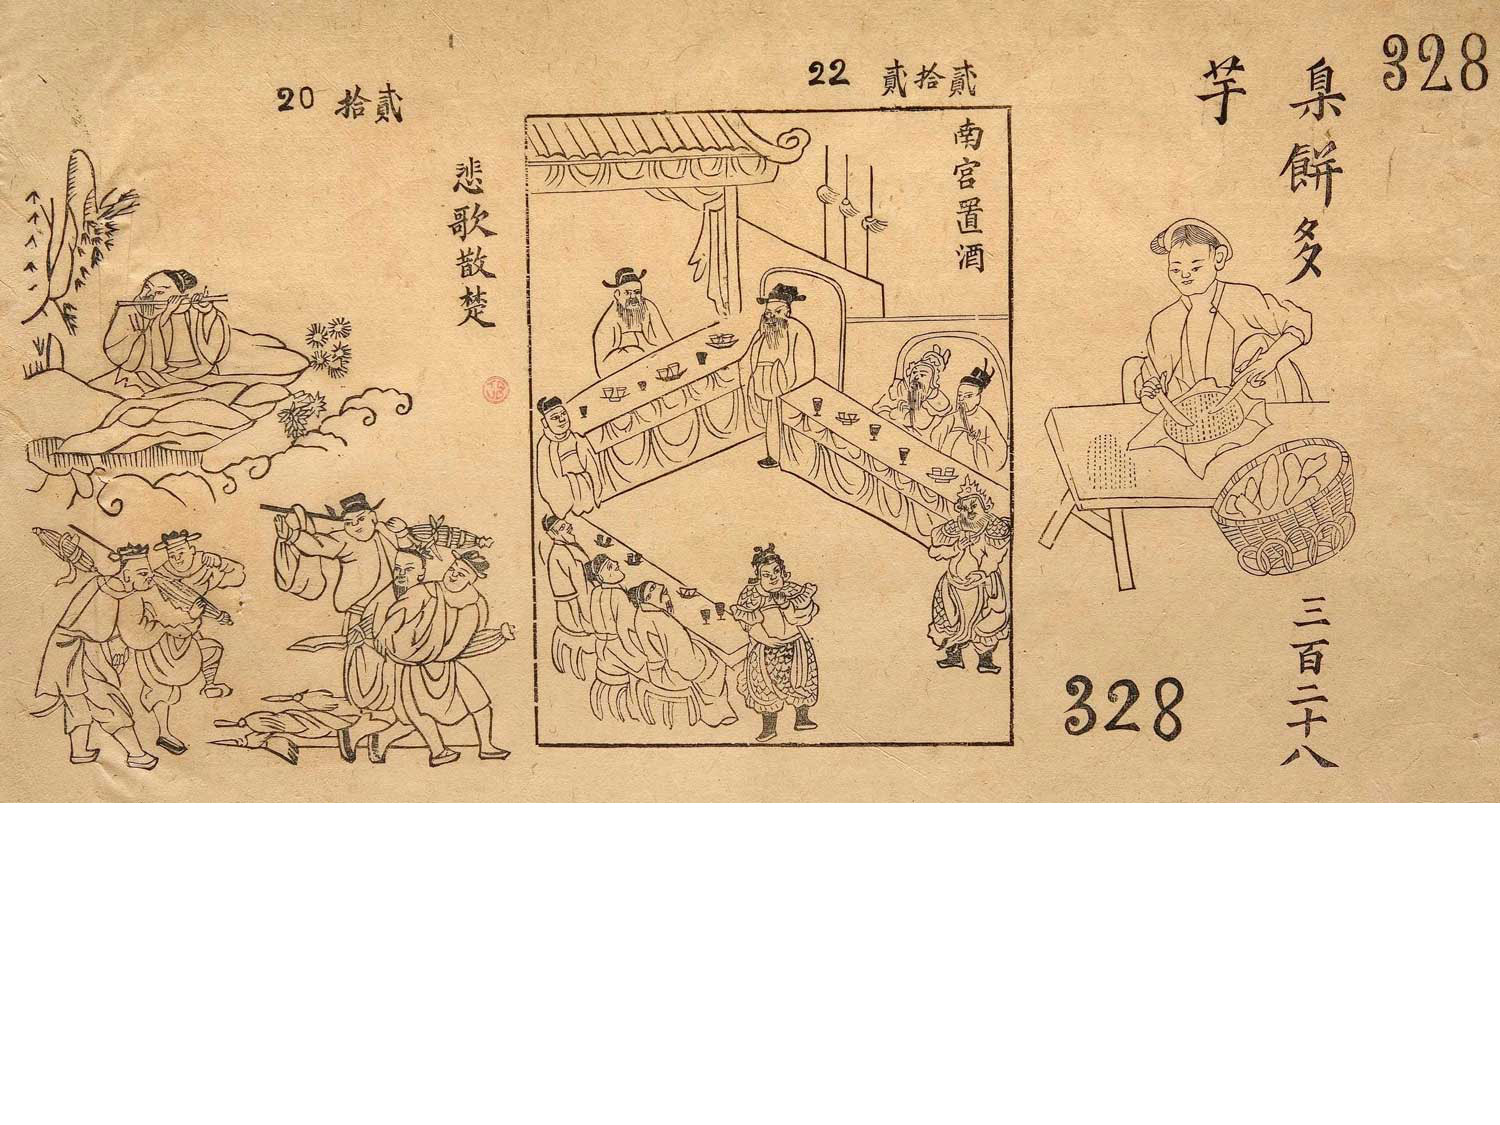 328
臬餅多
芋
三百二十八
328
22 貳拾貳
南宮置酒
20 貳拾
悲歌散楚